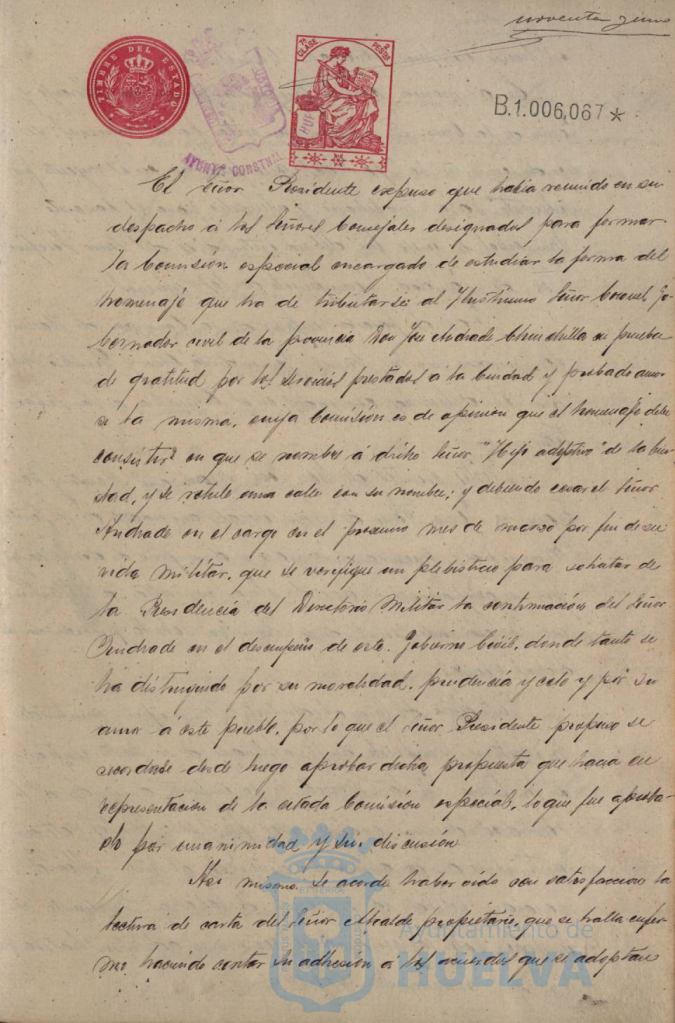 noventa y uno
TIMBRE DEL ESTADO
7ª CLASE 2 PESETAS
AYUNTº CONSTNAL
B.1.006,067*
El señor Presidente expuso que había reunido en su
despacho á los señores Concejales designados para formar
la Comisión especial encargado de estudiar la forma del
homenaje que ha de tributarse al Ilustrísimo Señor Coronel Go-
bernador civil de la provincia Don José Andrade Chinchilla en prueba
de gratitud por los servicios prestados á la Ciudad y probado amor
a la misma, cuya Comisión es de opinión que el homenaje debe
consistir en que se nombre á dicho Señor "Hijo adoptivo" de la Ciu-
dad, y se rotule una calle con su nombre; y debiendo cesar el Señor
Andrade en el cargo en el proximo mes de marzo por fin de su
vida militar, que se verifique un plebiscito para solicitar de
la Presidencia del Directorio Militar la continuación del Señor
Andrade en el desempeño de este Gobierno Civil, donde tanto se
ha distinguido por su moralidad, prudencia y celo y por su
amor á este pueblo, por lo que el señor Presidente propuso se
acordase desde luego aprobar dicha propuesta que hacia en
representacion de la citada Comisión especial, lo que fue aproba-
do por unanimidad y sin discusión
Asi mismo se acordó haber oido con satisfaccion la
lectura de carta del Señor Alcalde propietario, que se halla enfer-
mo haciendo constar su adhesión a los acuerdos que se adoptan
Ayuntamiento de
HUELVA